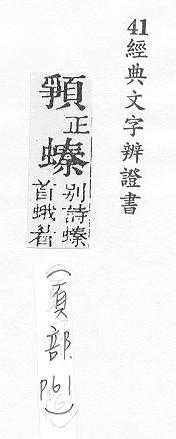 41經典文字辨證書
䫜正
螓別詩螓
首蛾
(頁部 p61)